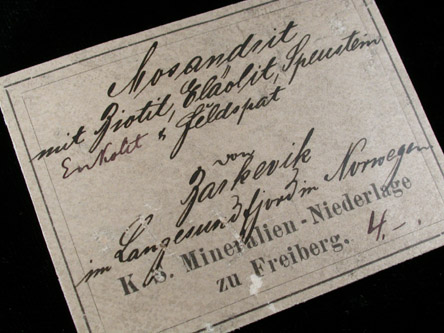 Mosandrit
mit Ziotil, Eläolit, Speustein
Enkolit & Feldspat
von
Barkevik
im Langesundfjord in Norwegen
K. S. Mineralien-Niederlage
zu Freiberg. 4.-.